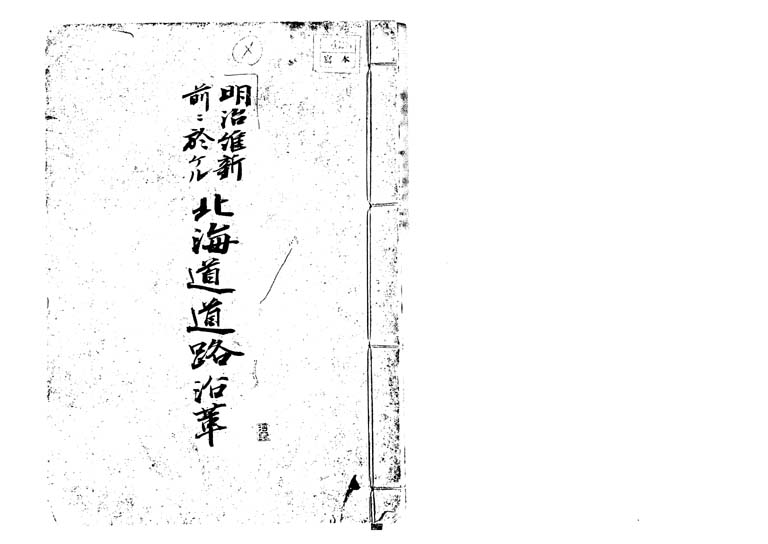 宮本
明治維新
前ニ於ケル
北海道道路沿革